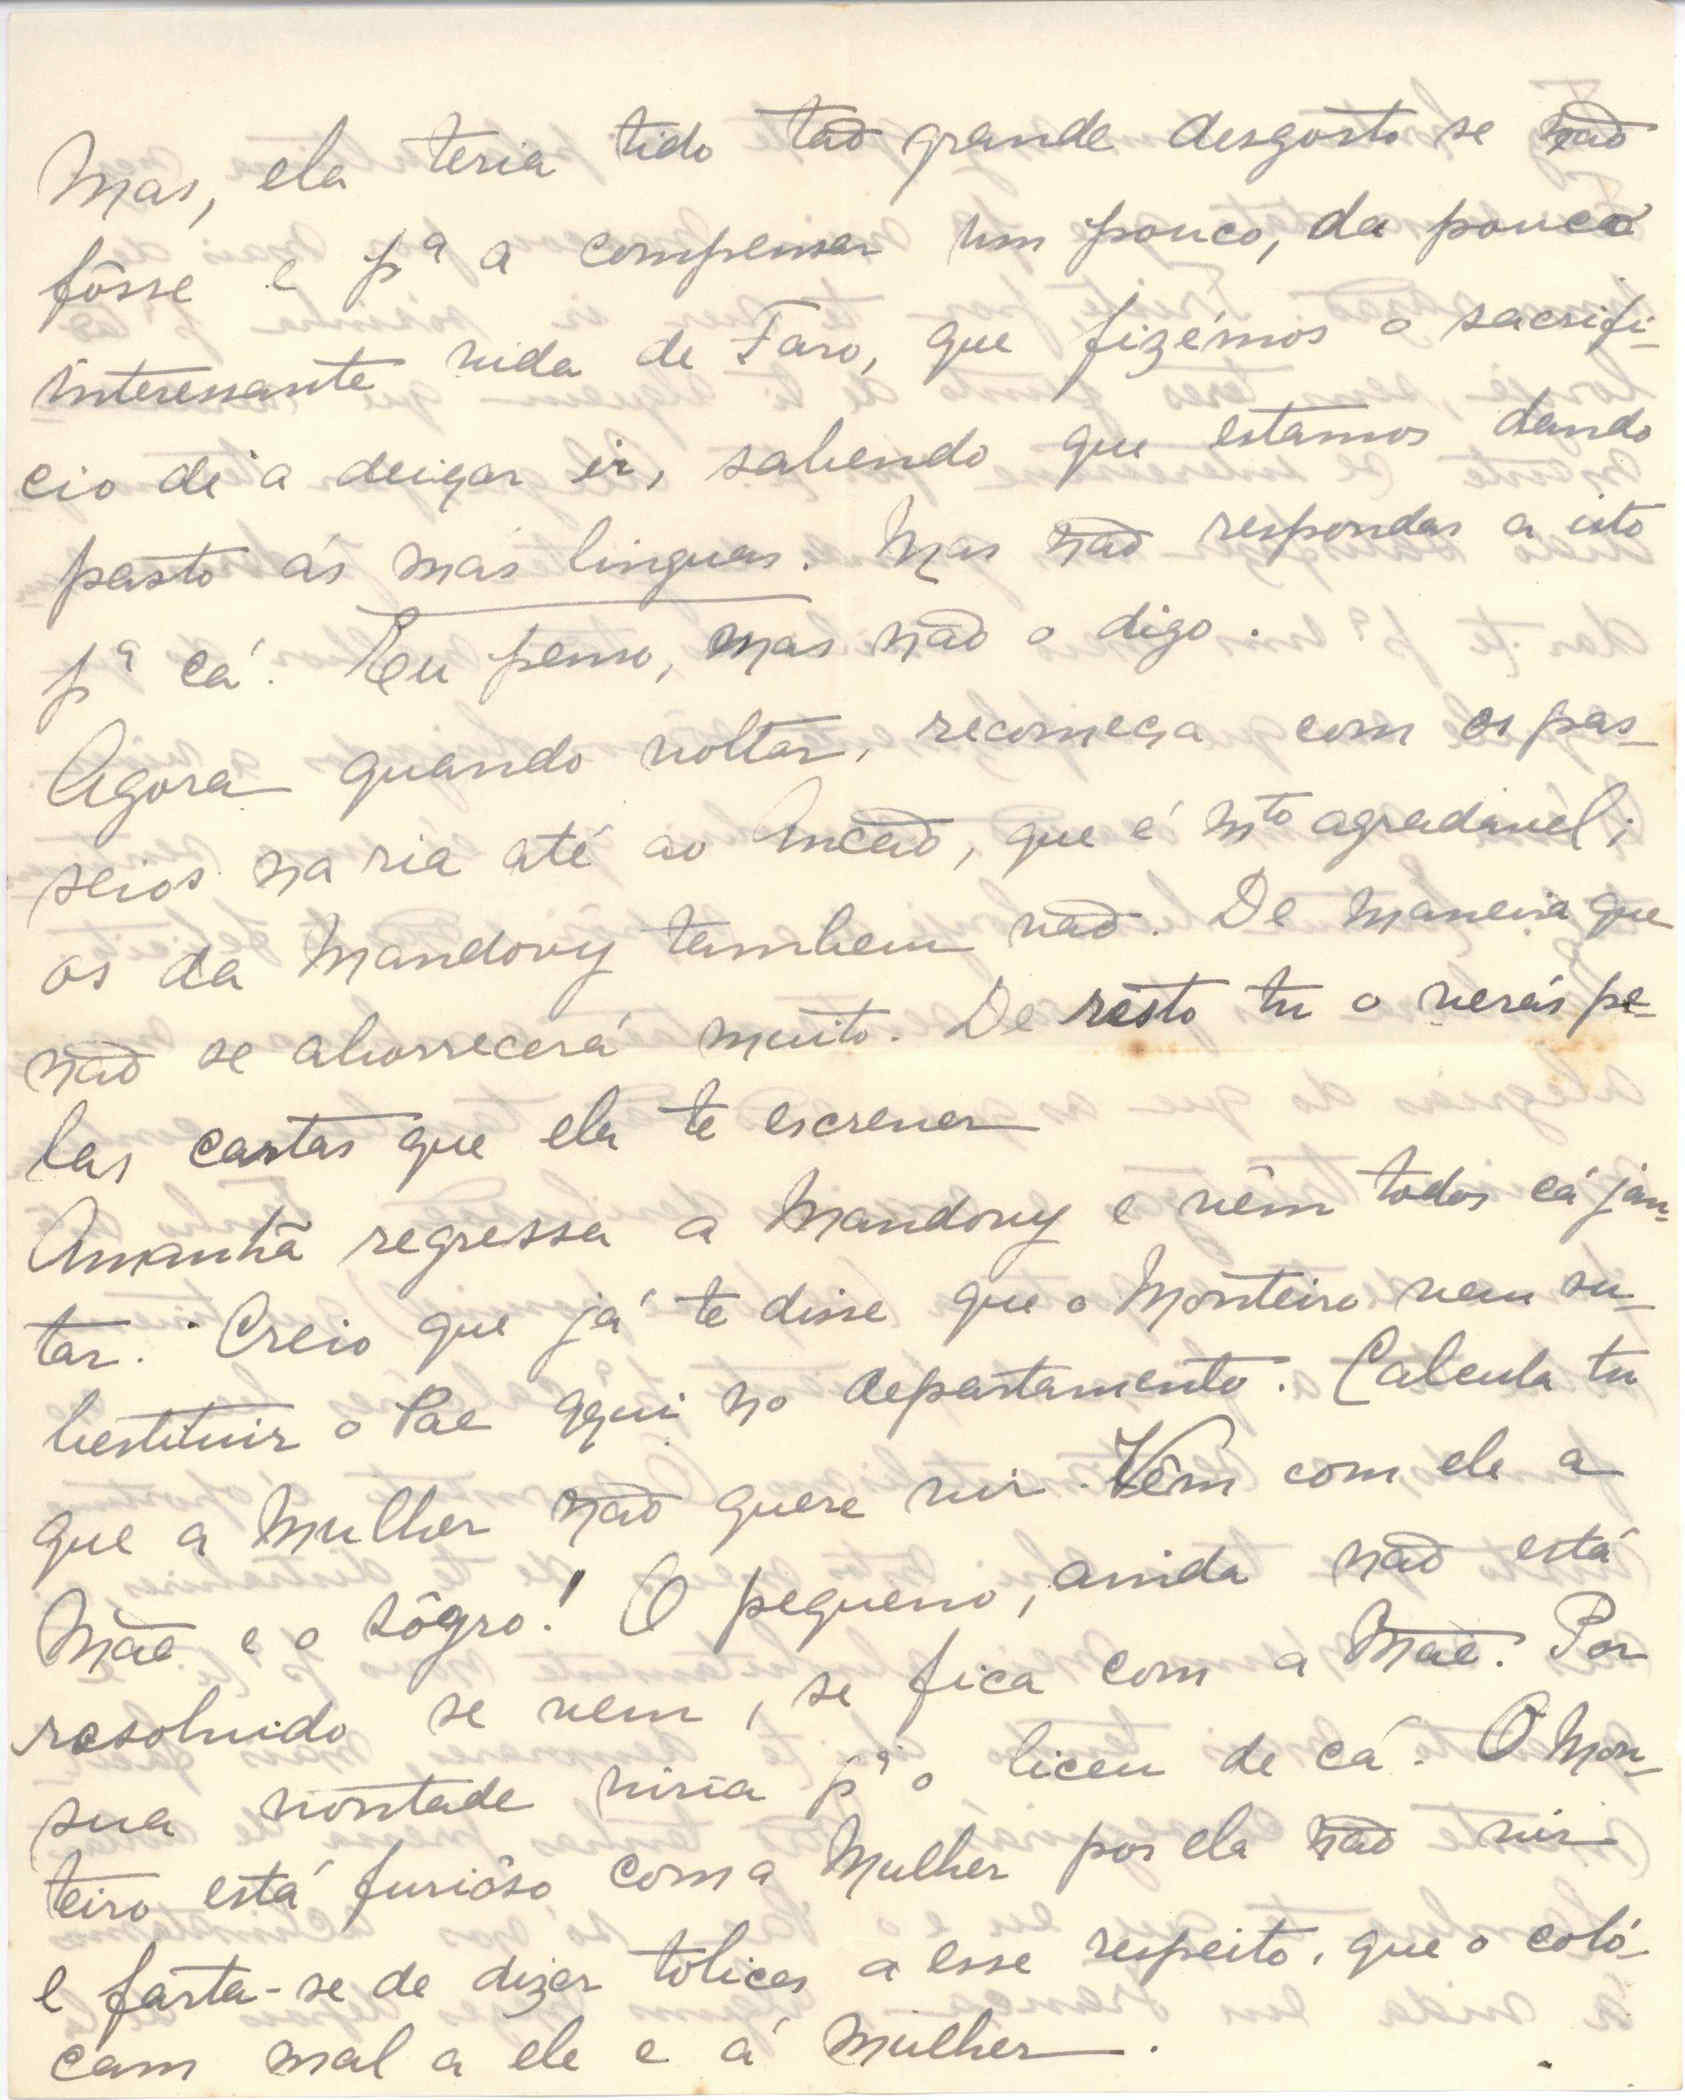 Mas, ela teria tido tão grande desgosto se não
fôsse e pª a compensar um pouco, da pouco
interessante vida de Faro, que fizémos o sacrifi-
cio de a deixar ir, sabendo que estamos dando
pasto ás más linguas. Mas não respondas a isto
pª cá. Eu penso, mas não o digo.
Agora quando voltar, recomeça com os pas-
seios na ria até ao Ancão, que é mto agradavel;
os da Mandovy tambem vão. De maneira que
não se aborrecerá muito. De resto tu o verás pe-
las cartas que ela te escrever
Amanhã regressa a Mandovy e vêm todos cá jan-
tar. Creio que já te disse que o Monteiro vem su-
bestituir o Pae aqui no departamento. Calcula tu
que a Mulher não quere vir. Vêm com ele a
Mãe e o sôgro! O pequeno, ainda não está
resolvido se vem, se fica com a Mãe. Por
sua vontade viria pª o liceu de cá. O Mon-
teiro está furiôso com a Mulher por ela não vir
e farta-se de dizer tolices a esse respeito, que o coló-
cam mal a ele e á Mulher.